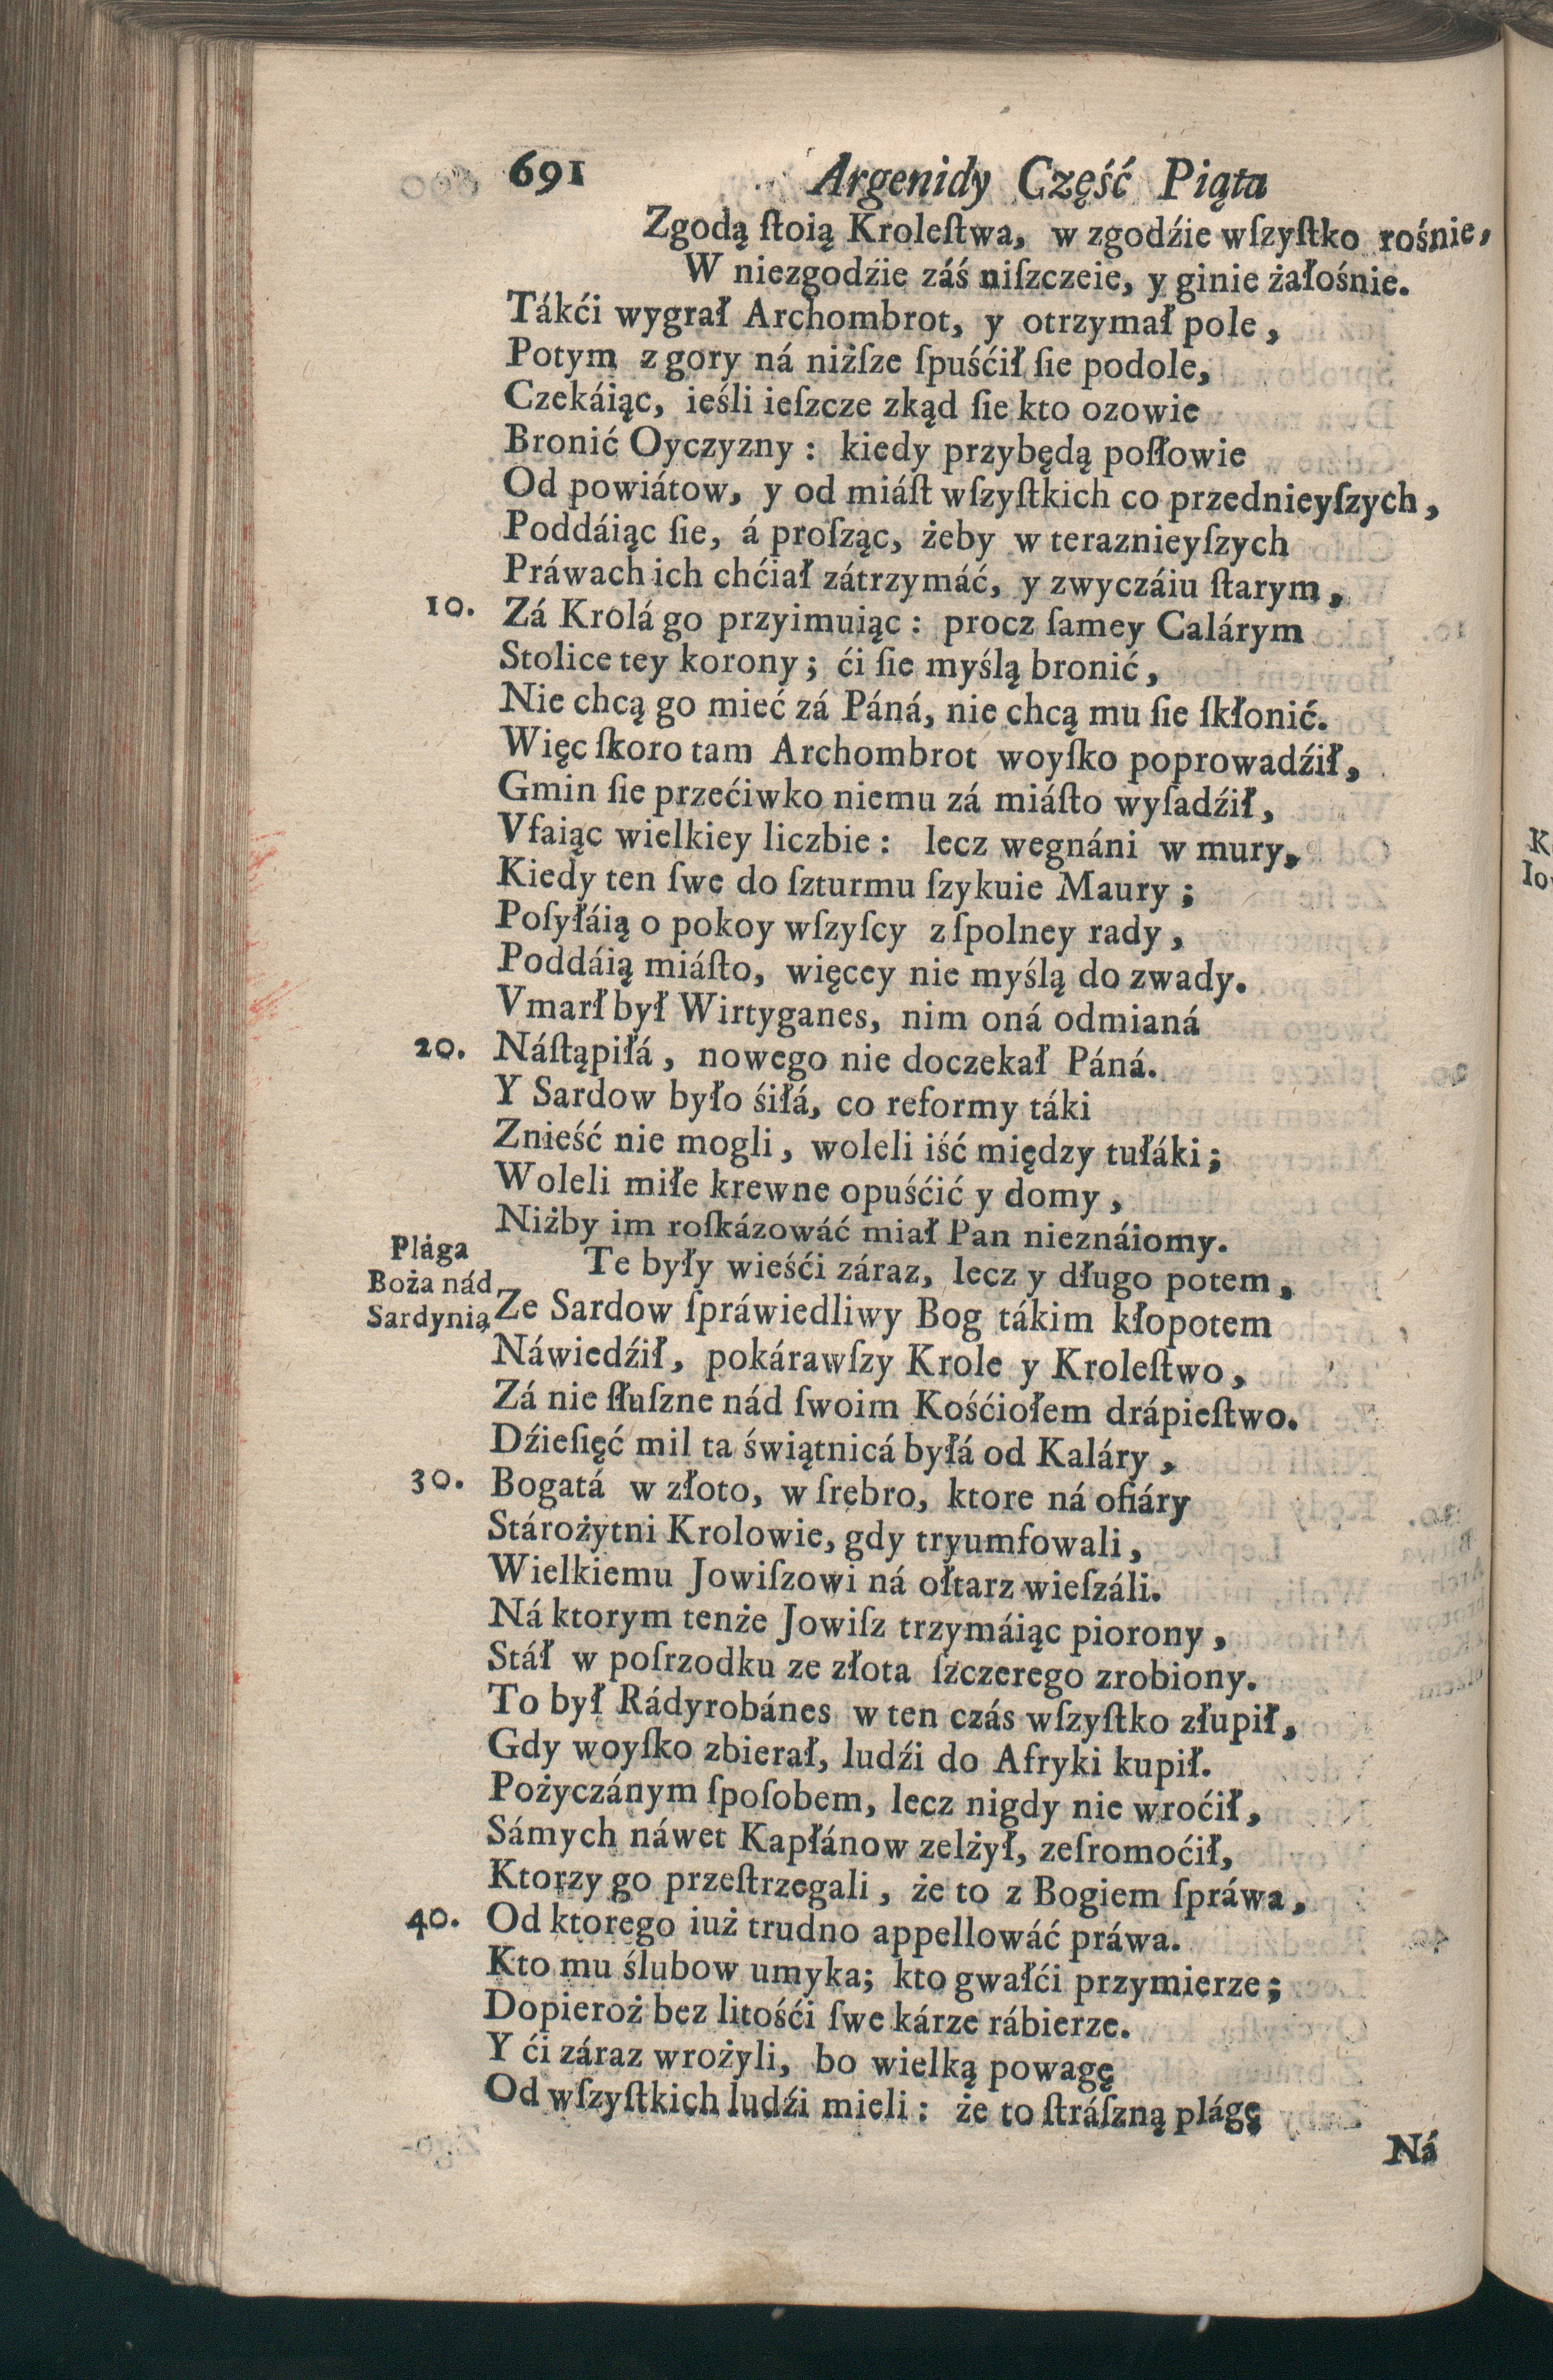 691 Argenidy Część Piąta
Zgodą ſtoią Kroleſtwa, w zgodźie wſzyſtko rośnie,
W niezgodźie záś niſzczeie, y ginie żałośnie.
Tákći wygrał Archombrot, y otrzymał pole,
Potym z gory ná niżſze ſpuśćił ſie podole,
Czekáiąc, ieśli ieſzcze zkąd ſie kto ozowie
Bronić Oyczyzny: kiedy przybędą poſłowie
Od powiátow, y od miáſt wſzyſtkich co przednieyſzych,
Poddáiąc ſie, á proſząc, żeby w teraznieyſzych
Práwach ich chćiał zátrzymáć, y zwyczáiu ſtarym,
10. Zá Krolá go przyimuiąc: procz ſamey Calárym
Stolice tey korony; ći ſie myślą bronić,
Nie chcą go mieć zá Páná, nie chcą mu ſie ſkłonić.
Więc ſkoro tam Archombrot woyſko poprowadźił,
Gmin ſie przećiwko niemu zá miáſto wyſadźił,
Vfaiąc wielkiey liczbie: lecz wegnáni w mury,
Kiedy ten ſwe do ſzturmu ſzykuie Maury;
Poſyłáią o pokoy wſzyſcy z ſpolney rady,
Poddáią miáſto, więcey nie myślą do zwady.
Vmarł był Wirtyganes, nim oná odmianá
20. Náſtąpiłá, nowego nie doczekał Páná.
Y Sardow było śiłá, co reformy táki
Znieść nie mogli, woleli iść między tułáki;
Woleli miłe krewne opuśćić y domy,
Niżby im roſkázowáć miał Pan nieznáiomy.
Plága
Boża nád
Sardynią
Te były wieśći záraz, lecz y długo potem,
Ze Sardow ſpráwiedliwy Bog tákim kłopotem
Náwiedźił, pokárawſzy Krole y Kroleſtwo,
Zá nie ſłuſzne nád ſwoim Kośćiołem drápieſtwo.
Dźieſięć mil ta świątnicá byłá od Kaláry,
30. Bogatá w złoto, w ſrebro, ktore ná ofiáry
Stárożytni Krolowie, gdy tryumfowali,
Wielkiemu Jowiſzowi ná ołtarz wieſzáli.
Ná ktorym tenże Jowiſz trzymáiąc piorony,
Stáł w poſrzodku ze złota ſzczerego zrobiony.
To był Rádyrobánes w ten czás wſzyſtko złupił,
Gdy woyſko zbierał, ludźi do Afryki kupił.
Pożyczánym ſpoſobem, lecz nigdy nie wroćił,
Sámych náwet Kapłánow zelżył, zeſromoćił,
Ktorzy go przeſtrzegali, że to z Bogiem ſpráwa,
40. Od ktorego iuż trudno appellowáć práwa.
Kto mu ślubow umyka; kto gwałći przymierze;
Dopieroż bez litośći ſwe kárze rábierze.
Y ći záraz wrożyli, bo wielką powagę
Od wſzyſtkich ludźi mieli: że to ſtráſzną plágę
Ná